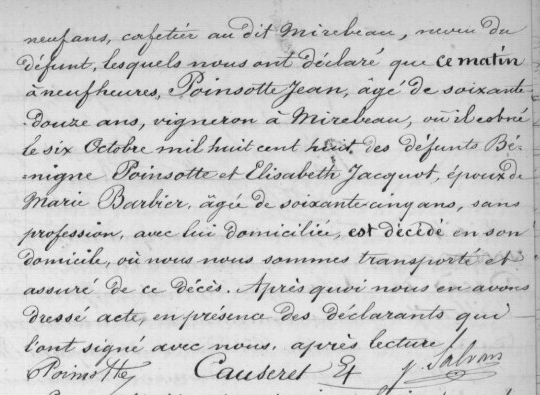 neuf ans, cafetier au dit Mirebeau, neveu du
défunt, lesquels nous ont déclaré que ce matin
à neuf heures, Poinsotte Jean, âgé de soixante
douze ans, vigneron à Mirebeau, où il est né
le six Octobre mil huit cent huit des défunts Bé-
nigne Poinsotte et Elisabeth Jacquot, époux de
Marie Barbier, âgée de soixante cinq ans, sans
profession, avec lui domiciliée, est décédé en son
domicile, où nous nous sommes transporté et
assuré de ce décès. Après quoi nous en avons
dressé acte, en présence des déclarants qui
l'ont signé avec nous, après lecture
Poinsotte Causeret